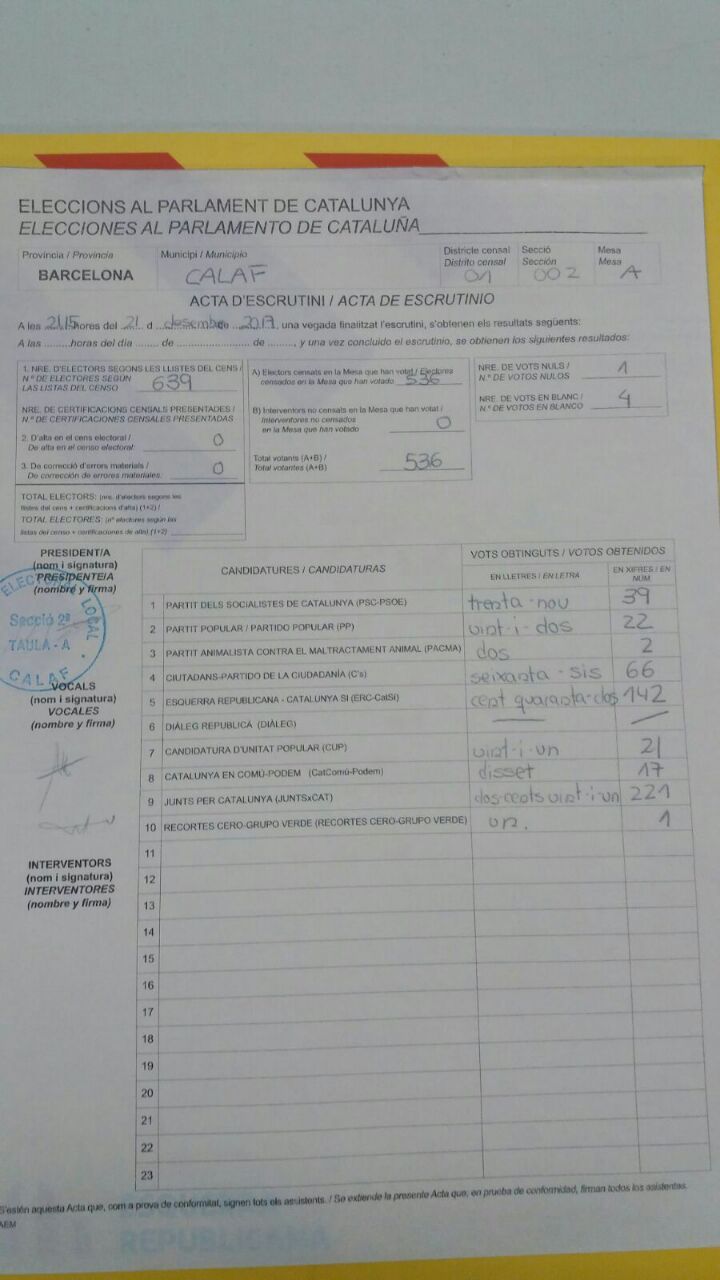 ELECCIONS AL PARLAMENT DE CATALUNYA
ELECCIONES AL PARLAMENTO DE CATALUÑA
Província / Provincia
BARCELONA
Municipi / Municipio
CALAF
Districte censal
Distrito censal
01
Secció
Sección
002
Mesa
Mesa
A
ACTA D'ESCRUTINI / ACTA DE ESCRUTINIO
A les 21,15 hores del 21 d desembre de 2017, una vegada finalitzat l'escrutini, s'obtenen els resultats següents:
A las ........ horas del día ........ de ........................ de ........, y una vez concluido el escrutinio, se obtienen los siguientes resultados:
1. NRE. D'ELECTORS SEGONS LES LLISTES DEL CENS /
N.º DE ELECTORES SEGÚN
LAS LISTAS DEL CENSO 639
NRE. DE CERTIFICACIONS CENSALS PRESENTADES /
N.º DE CERTIFICACIONES CENSALES PRESENTADAS
2. D'alta en el cens electoral /
De alta en el censo electoral: 0
3. De correcció d'errors materials /
De corrección de errores materiales: 0
TOTAL ELECTORS: (nre. d'electors segons les
llistes del cens + certificacions d'alta) (1+2) /
TOTAL ELECTORES: (nº electores según las
listas del censo + certificaciones de alta) (1+2)
A) Electors censats en la Mesa que han votat / Electores
censados en la Mesa que han votado 536
B) Interventors no censats en la Mesa que han votat /
Interventores no censados
en la Mesa que han votado 0
Total votants (A+B) /
Total votantes (A+B) 536
NRE. DE VOTS NULS /
N.º DE VOTOS NULOS 1
NRE. DE VOTS EN BLANC /
N.º DE VOTOS EN BLANCO 4
PRESIDENT/A
(nom i signatura)
PRESIDENTE/A
(nombre y firma)
ELECTORAL LOCAL
Secció 2ª
TAULA - A
CALAF
VOCALS
(nom i signatura)
VOCALES
(nombre y firma)
INTERVENTORS
(nom i signatura)
INTERVENTORES
(nombre y firma)
CANDIDATURES / CANDIDATURAS
VOTS OBTINGUTS / VOTOS OBTENIDOS
EN LLETRES / EN LETRA
EN XIFRES / EN NÚM.
1 PARTIT DELS SOCIALISTES DE CATALUNYA (PSC-PSOE) trenta-nou 39
2 PARTIT POPULAR / PARTIDO POPULAR (PP) vint-i-dos 22
3 PARTIT ANIMALISTA CONTRA EL MALTRACTAMENT ANIMAL (PACMA) dos 2
4 CIUTADANS-PARTIDO DE LA CIUDADANÍA (C's) seixanta-sis 66
5 ESQUERRA REPUBLICANA - CATALUNYA SÍ (ERC-CatSí) cent quaranta-dos 142
6 DIÀLEG REPUBLICÀ (DIÀLEG)
7 CANDIDATURA D'UNITAT POPULAR (CUP) vint-i-un 21
8 CATALUNYA EN COMÚ-PODEM (CatComú-Podem) disset 17
9 JUNTS PER CATALUNYA (JUNTSxCAT) dos-cents vint-i-un 221
10 RECORTES CERO-GRUPO VERDE (RECORTES CERO-GRUPO VERDE) un. 1
11
12
13
14
15
16
17
18
19
20
21
22
23
S'estén aquesta Acta que, com a prova de conformitat, signen tots els assistents. / Se extiende la presente Acta que, en prueba de conformidad, firman todos los asistentes.
AEM
REPUBLICANA